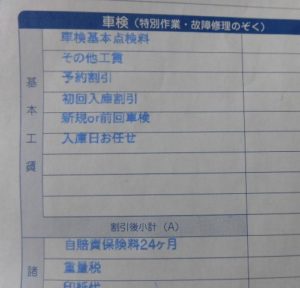 車検（特別作業・故障修理のぞく）
基本工賃
車検基本点検料
その他工賃
予約割引
初回入庫割引
新規or前回車検
入庫日お任せ
割引後小計（A）
諸
自賠責保険料24ヶ月
重量税
印紙代